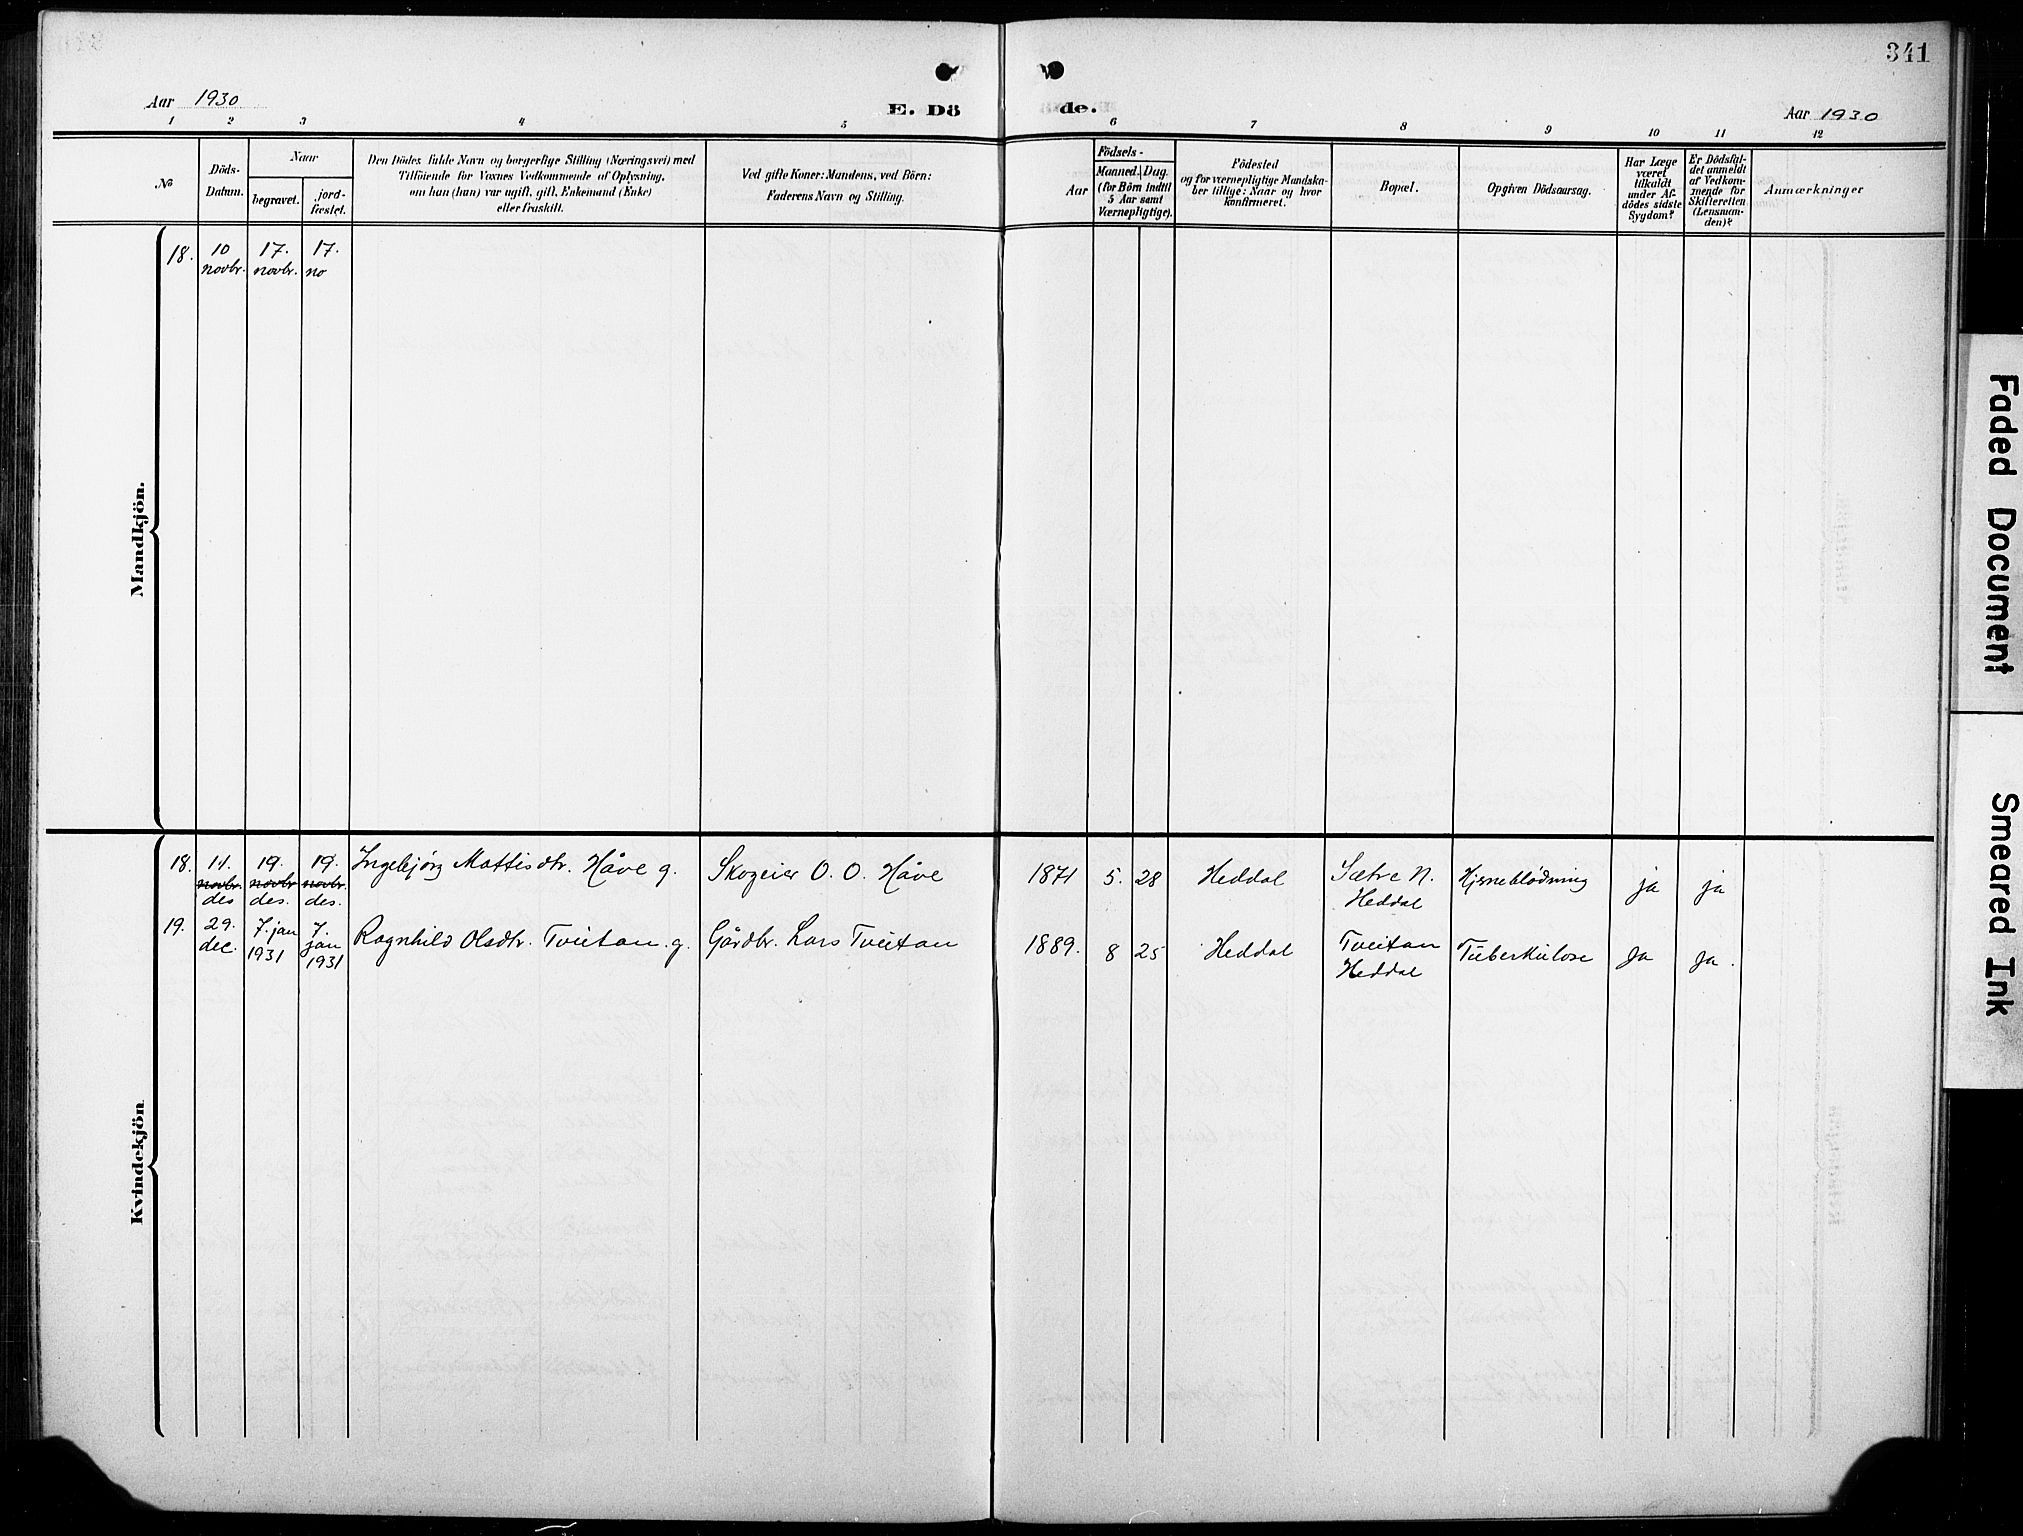 341
Aar 1930
E. Dö
de.
Aar 1930
1 2 3 4 5 6 7 8 9 10 11 12
No
Döds-
Datum.
Naar
begravet.
jord-
fæstet.
Den Dödes fulde Navn og borgerlige Stilling (Næringsvei) med
Tilföiende for Voxnes Vedkommende af Oplysning,
om han (hun) var ugift, gift, Enkemand (Enke)
eller fraskilt.
Ved gifte Koner: Mandens, ved Börn:
Faderens Navn og Stilling.
Födsels-
Aar
Maaned.
Dag.
(for Börn indtil
5 Aar samt
Værnepligtige).
Födested
og for værnepligtige Mandska-
ber tillige: Naar og hvor
konfirmeret.
Bopæl.
Opgiven Dödsaarsag.
Har Læge
været
tilkaldt
under Af-
dödes sidste
Sygdom?
Er Dödsfal-
det anmeldt
af Vedkom-
mende for
Skifteretten
(Lensman-
den)?
Anmærkninger
Mandkjön.
18. 10 17. 17.
novbr. novbr. no
Kvindekjön
18. 11. 19. 19. Ingebjörg Mattisdtr. Håve g. Skogeier O. O. Håve 1871 5. 28 Heddal Sætre N. Hjerneblödning ja ja
novbr. novbr novbr. Heddal
des des. des.
19. 29. 7. jan 7. Ragnhild Olsdtr. Tveitan. g. Gårdbr. Lars Tveitan 1889. 8 25 Heddal Tveitan Tuberkulose Ja Ja.
dec. 1931 jan Heddal
1931
Faded Document
Smeared Ink